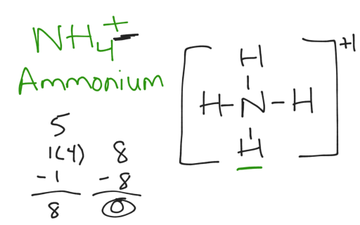 NH₄⁺
Ammonium
5
1(4)
-1
8
8
-8
0
H
H-N-H
H
+1